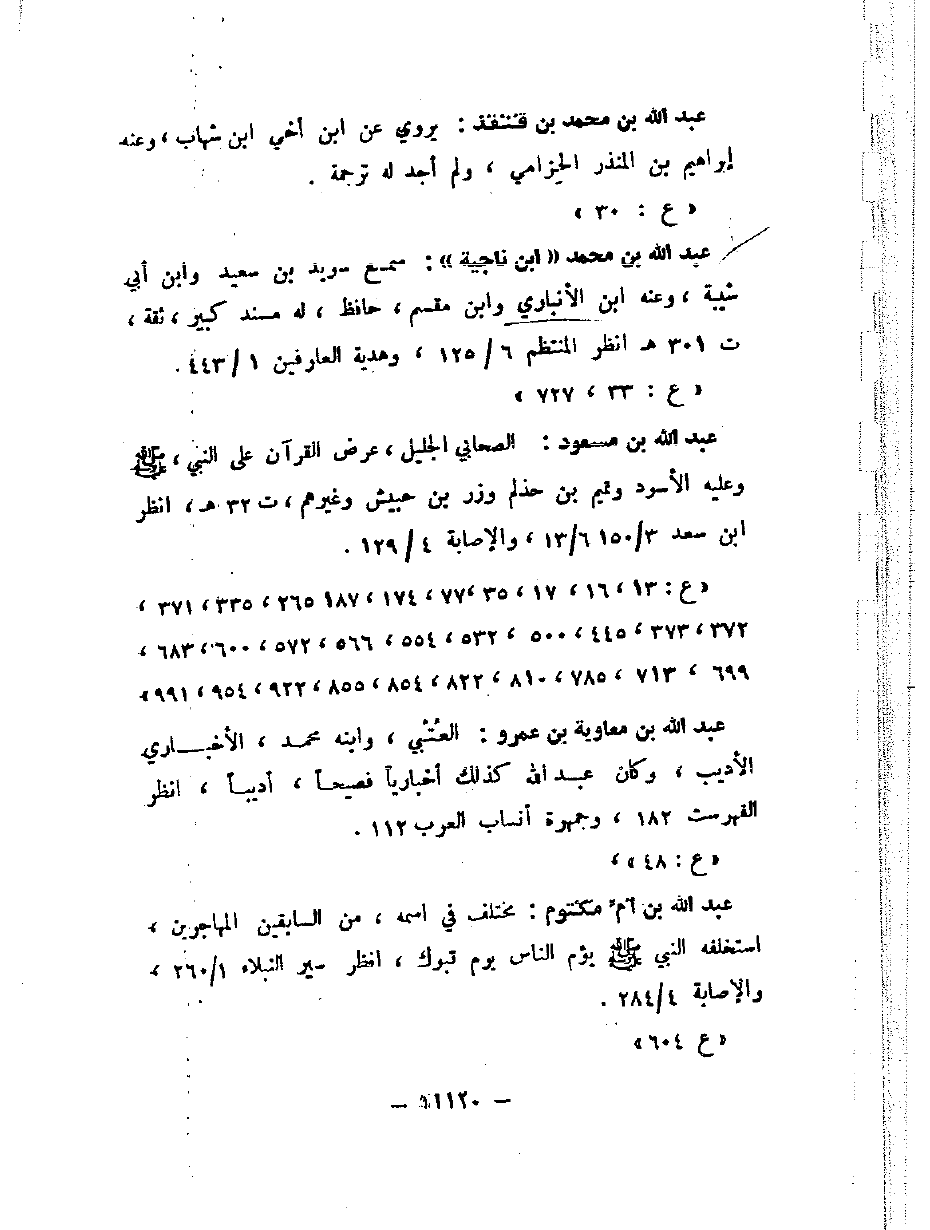 عبد الله بن محمد بن قنفذ : يروي عن ابن أخي ابن شهاب ، وعنه
إبراهيم بن المنذر الحزامي ، ولم أجد له ترجمة .
« ع : ٣٠ »
عبد الله بن محمد « ابن ناجية » : سمع سويد بن سعيد وابن أبي
شيبة ، وعنه ابن الأنباري وابن مقسم ، حافظ ، له مسند كبير ، ثقة ،
ت ٣٠١ هـ انظر المنتظم ٦/١٢٥ ، وهدية العارفين ١/٤٤٣ .
« ع : ٣٣ ، ٧٢٧ »
عبد الله بن مسعود : الصحابي الجليل ، عرض القرآن على النبي ، ﷺ
وعليه الأسود وتميم بن حذلم وزر بن حبيش وغيرهم ، ت ٣٢ هـ ، انظر
ابن سعد ٣/١٥٠ ٦/١٣ ، والإصابة ٤/١٢٩ .
« ع : ١٣ ، ١٦ ، ١٧ ، ٣٥ ، ٧٧ ، ١٧٤ ، ١٨٧ ، ٢٦٥ ، ٣٣٥ ، ٣٧١ ،
٣٧٢ ، ٣٧٣ ، ٤٤٥ ، ٥٠٠ ، ٥٣٢ ، ٥٥٤ ، ٥٦٦ ، ٥٧٢ ، ٦٠٠ ، ٦٨٣ ،
٦٩٩ ، ٧١٣ ، ٧٨٥ ، ٨١٠ ، ٨٢٢ ، ٨٥٤ ، ٨٥٥ ، ٩٢٢ ، ٩٥٤ ، ٩٩١ »
عبد الله بن معاوية بن عمرو : العُتْبي ، وابنه محمد ، الأخباري
الأديب ، وكان عبد الله كذلك أخبارياً فصيحاً ، أديباً ، انظر
الفهرست ١٨٢ ، وجمهرة أنساب العرب ١١٢ .
« ع : ٤٨ » ،
عبد الله بن أم مكتوم : مختلف في اسمه ، من السابقين المهاجرين ،
استخلفه النبي ﷺ يؤم الناس يوم تبوك ، انظر سير النبلاء ١/٢٦٠ ،
والإصابة ٤/٢٨٤ .
« ع ٦٠٤ »
— ١١٢٠ —